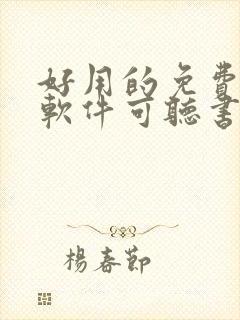 好用的免費
軟件可聽書
楊春節